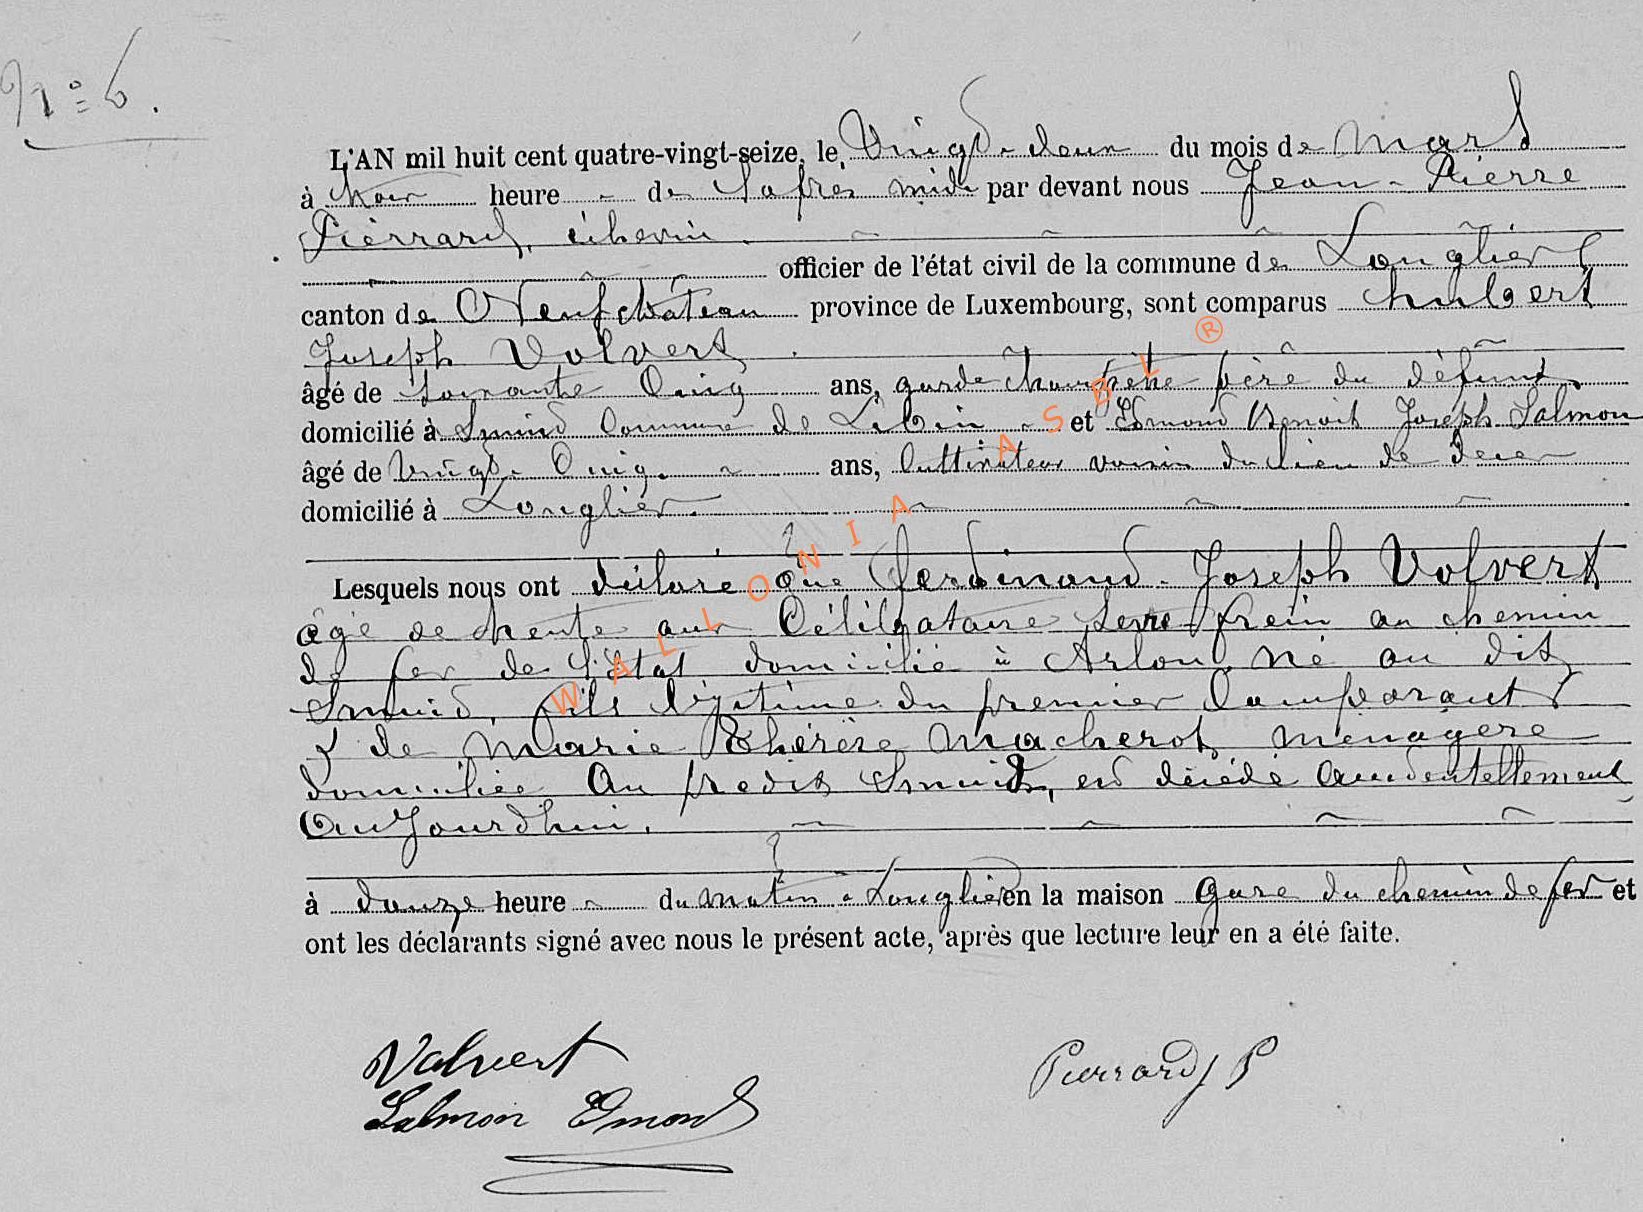 N° 6.
L'AN mil huit cent quatre-vingt-seize, le Vingt-deux du mois de Mars
à trois heure de l'après midi par devant nous Jean-Pierre
Pierrard, échevin
officier de l'état civil de la commune de Longlier
canton de Neufchâteau province de Luxembourg, sont comparus Hubert
Joseph Volvert
âgé de soixante cinq ans, garde champêtre père du défunt,
domicilié à Smuid commune de Libin et Edmond Benoit Joseph Salmon
âgé de vingt-cinq ans, cultivateur voisin du lieu de décès
domicilié à Longlier.
Lesquels nous ont déclaré que Ferdinand-Joseph Volvert
âgé de trente ans Célibataire Serre-frein au chemin
de fer de l'état domicilié à Arlon, né au dit
Smuid, fils légitime du premier Comparant
& de Marie Thérèse Macherot ménagère
domiciliée au predit Smuid, est décédé accidentellement
aujourd'hui.
à douze heure du matin à Longlier en la maison gare du chemin de fer et
ont les déclarants signé avec nous le présent acte, après que lecture leur en a été faite.
Volvert
Salmon Emond
Pierrard J P
WALLONIA ASBL ®